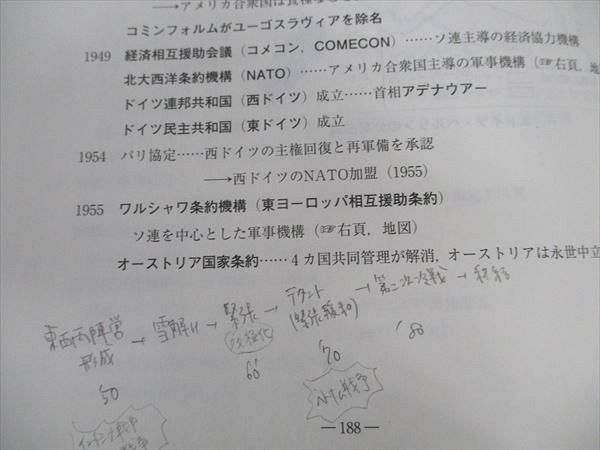 ──→アメリカ合衆国は
コミンフォルムがユーゴスラヴィアを除名
1949 経済相互援助会議（コメコン，COMECON）……ソ連主導の経済協力機構
北大西洋条約機構（NATO）……アメリカ合衆国主導の軍事機構（☞右頁，地
ドイツ連邦共和国（西ドイツ）成立……首相アデナウアー
ドイツ民主共和国（東ドイツ）成立
1954 パリ協定……西ドイツの主権回復と再軍備を承認
──→西ドイツのNATO加盟（1955）
1955 ワルシャワ条約機構（東ヨーロッパ相互援助条約）
ソ連を中心とした軍事機構（☞右頁，地図）
オーストリア国家条約……４カ国共同管理が解消，オーストリアは永世中立
東西両陣営形成 → 雪解け → 緊張 → デタント（緊張緩和） → 第二次冷戦 → 終結
多極化
'50 60' '70 '80
ベトナム戦争
戦争
― 188 ―